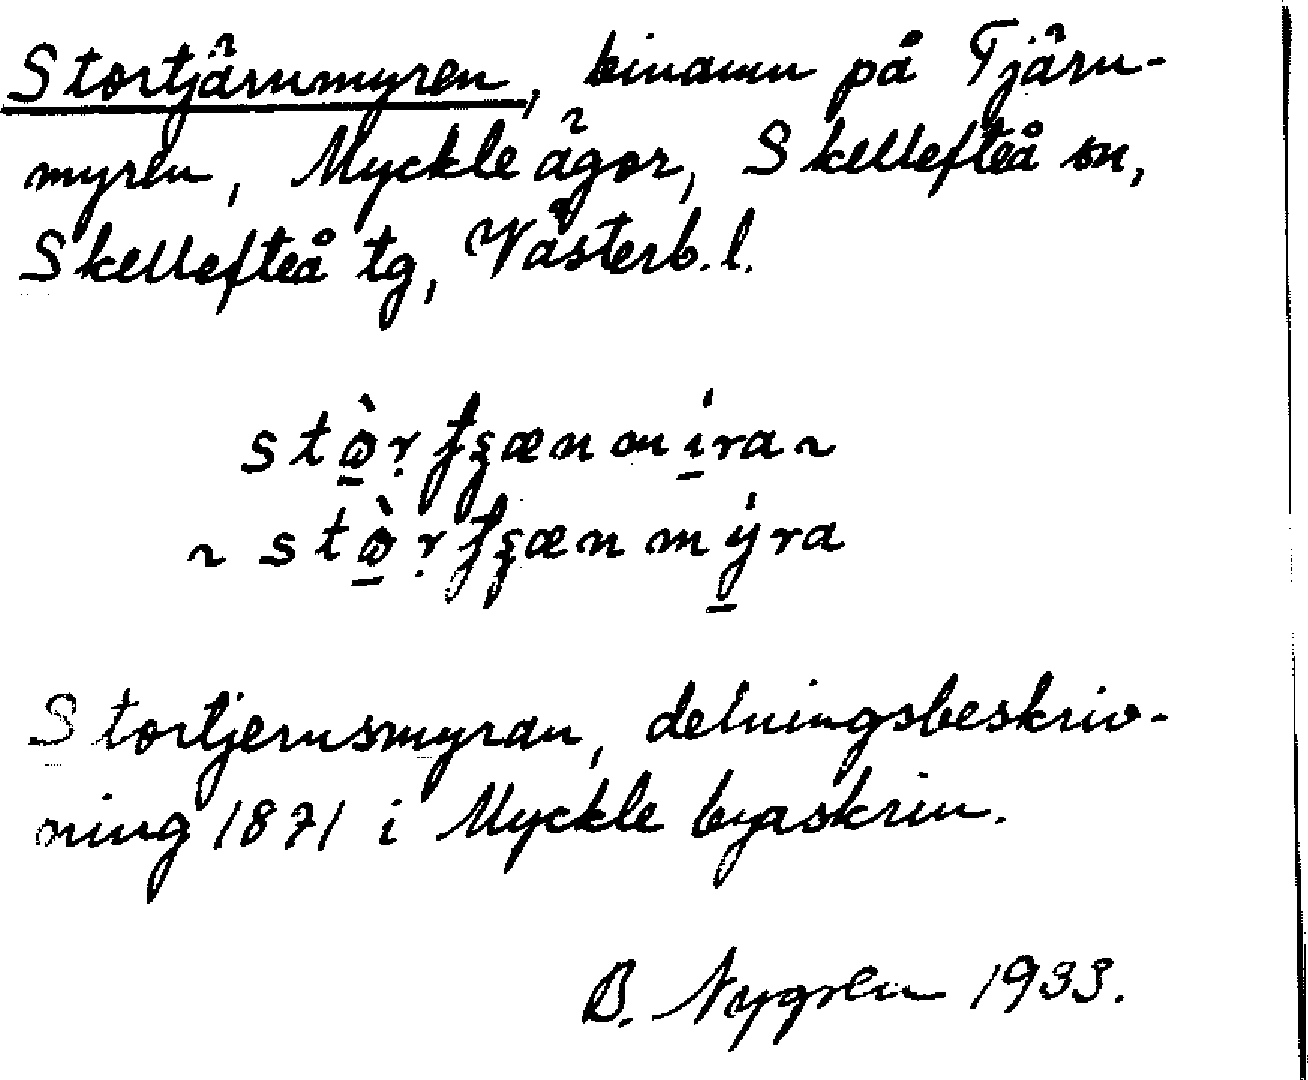 Stortjärnmyren, binamn på Tjärn-
myren, Myckle ägor, Skellefteå sn,
Skellefteå tg, Västerb. l.
~
~
Stortjernsmyran, delningsbeskriv-
ning 1871 i Myckle byaskrin.
B. Nygren 1933.